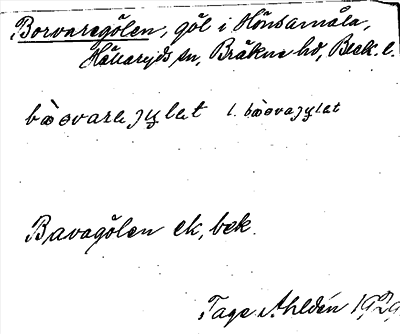 Borvaregölen, göl i Hönsamåla,
Hällaryds sn, Bräkne hd, Blek. l.
bàɵvarejylet l. bàɵvajylet
Bavagölen ek, bek.
Tage Ahldén 1929